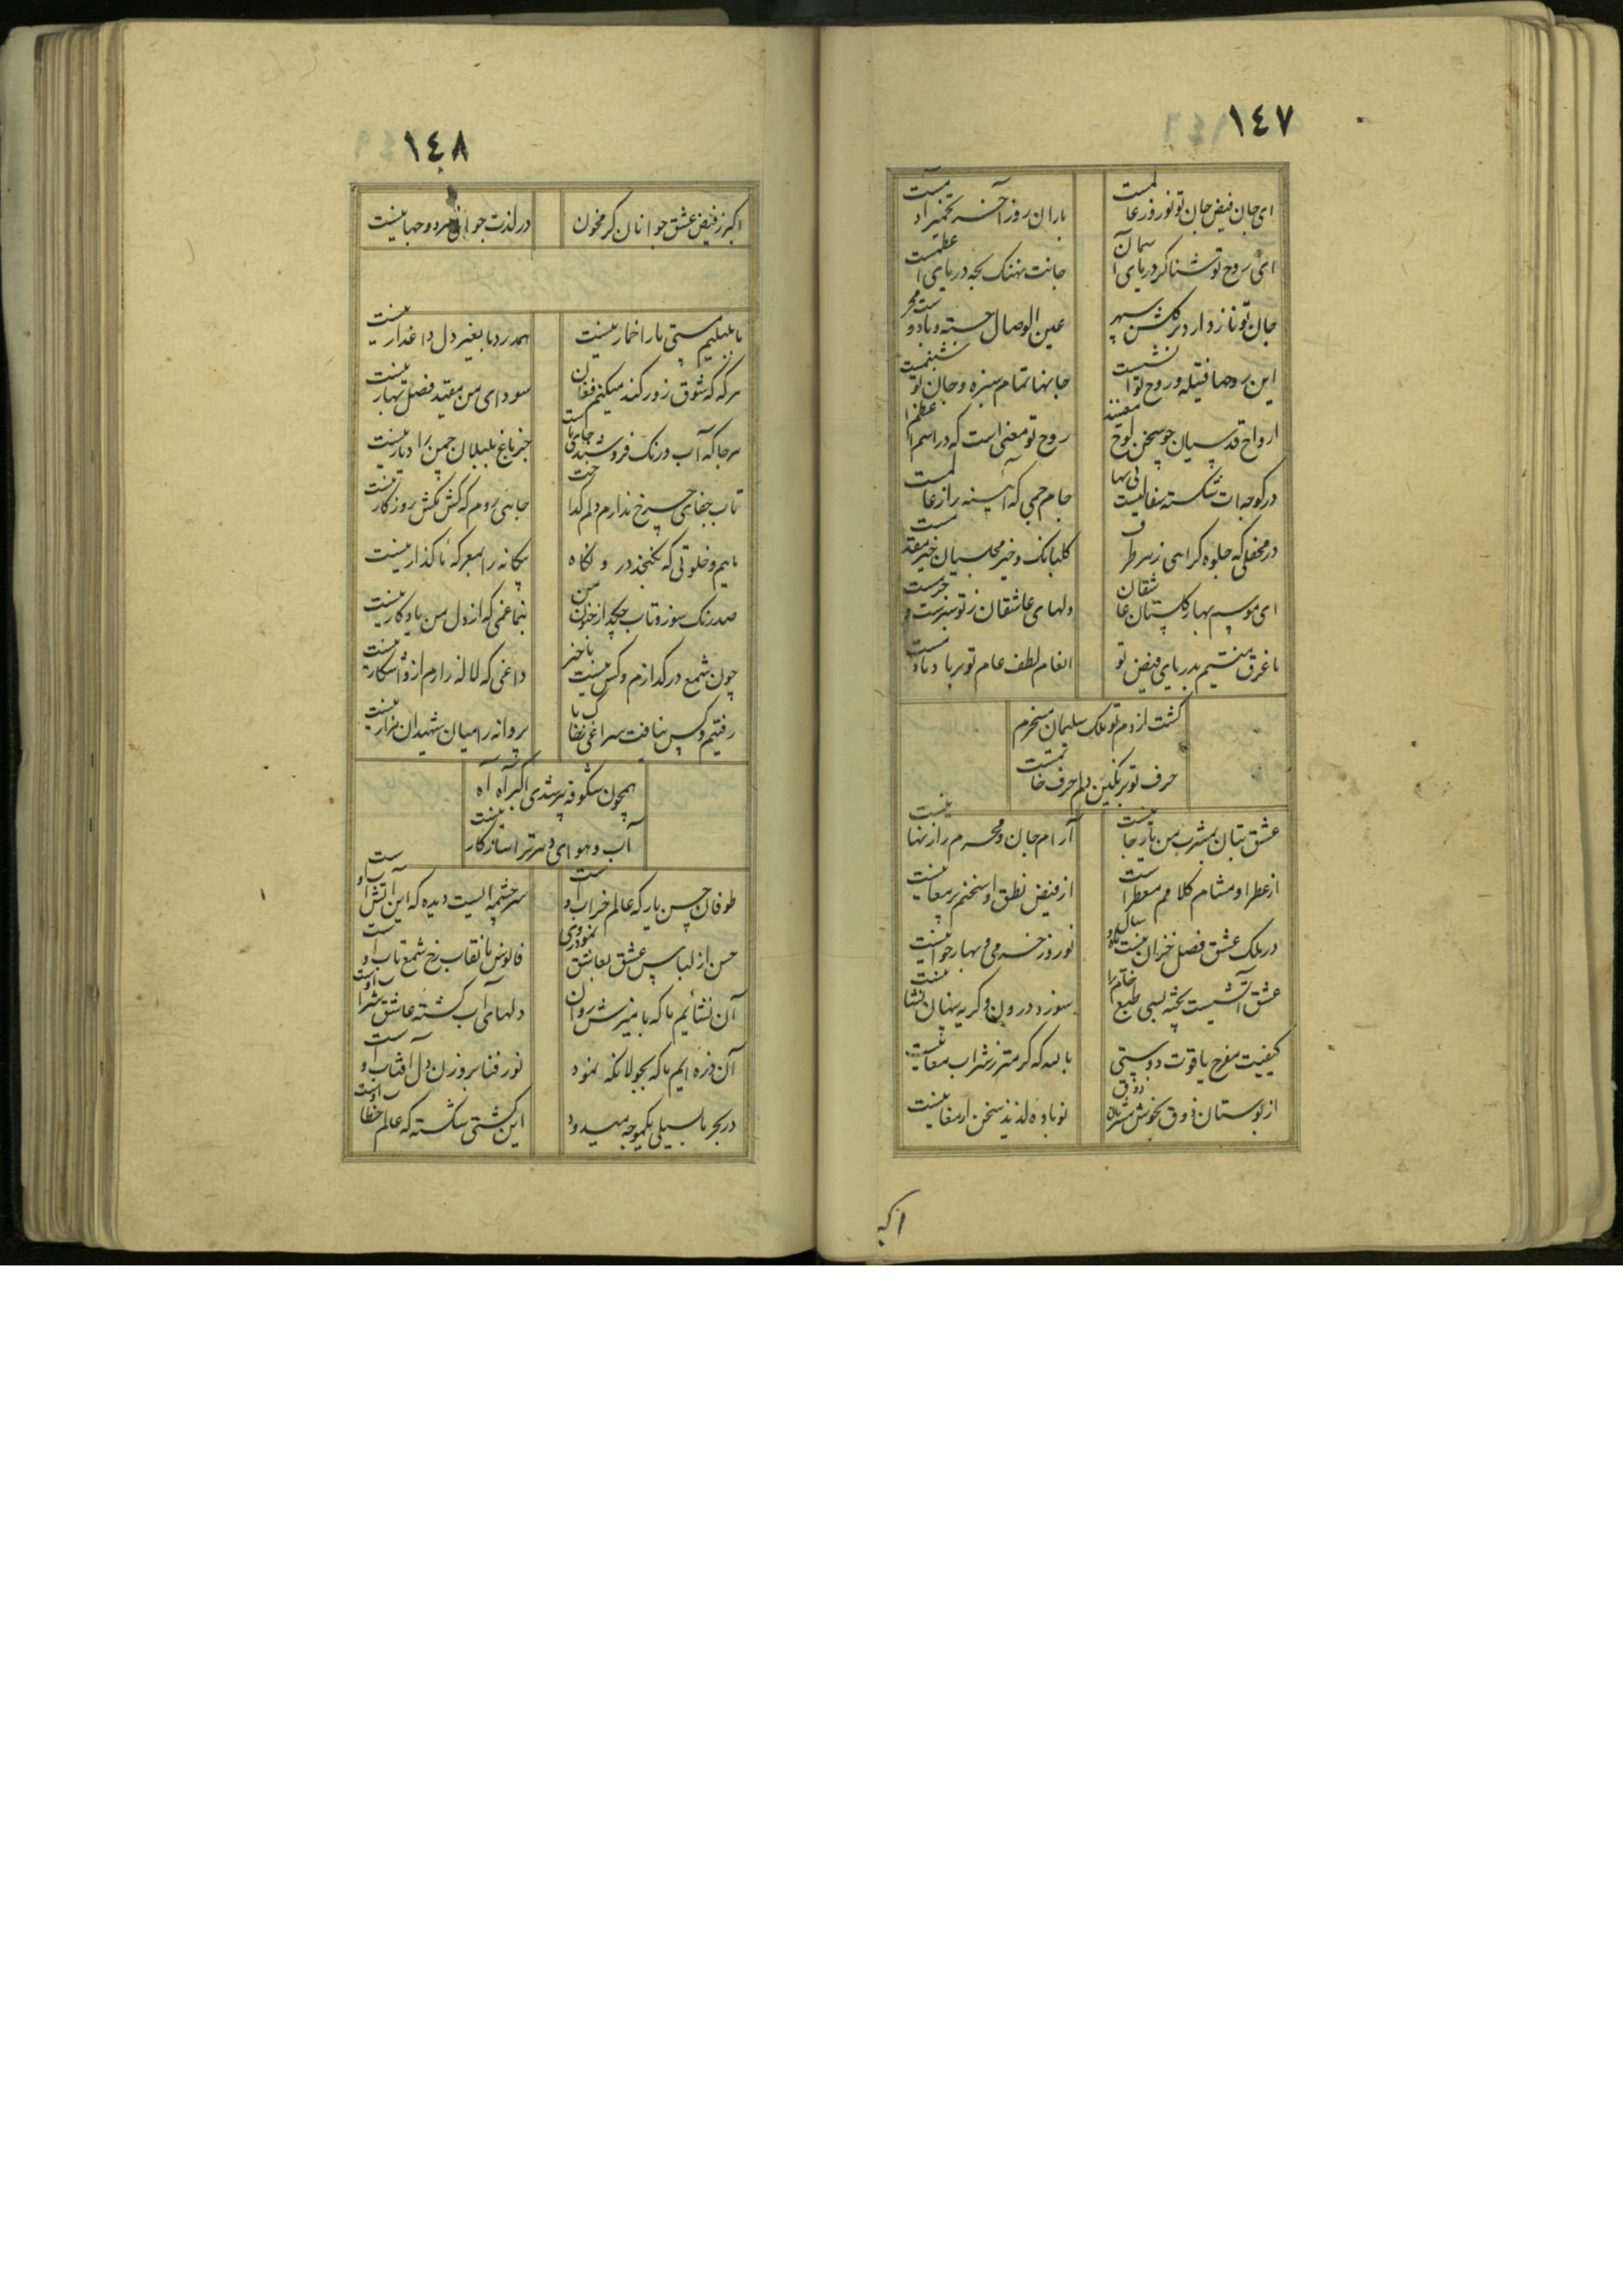 ١٤٧
ای جان فیض جان تو نوروز عالمست
باران روز آخر
ای روح تو شناکر دریای آسمان
جانت نهنک لجه دریای اعظمست
جان تو ناز دارد بر کلشن سپهر
عین الوصال
این روحها فتیله و روح تو آتشست
جانها تمام سبزه و جان تو شبنمست
ارواح قدسیان چو سخن لوح
روح تو معنی است که در اسم اعظم
در کوچهات شکسته سفالیست
جام جمی که آینه راز عالمست
در محفلی که جلوه کر آیی ز هر طرف
کلبانک و خیر مجلسیان خیر مقدمست
ای موسم بهار کلستان عاشقان
دلهای عاشقان ز تو سبزست و خرمست
ما غرق منتیم بدریای فیض تو
انعام لطف عام تو بر باد
کشت از دم تو ملک سلیمان مسخرم
حرف تو بر نکین دلم حرف خاتمست
عشق بتان بمشرب من یار جانیست
آرام جان و محرم راز نهانیست
از عطر او مشام کلامم معطر است
از فیض نطق او سخنم پر معانیست
در ملک عشق فصل خزان نیست
نوروز خرمی و بهار جوانیست
عشق آتشیست پخته بسی طبع خام را
سوز درون و کریه پنهان نشانیست
کیفیت مفرح یاقوت دوستی
بالله که کرمتر ز شراب مغانیست
از بوستان ذوق بخوش مشربان
نوباوه لذیذ سخن ارمغانیست
اکبر
١٤٨
اکبر ز فیض عشق جوانان کر مخون
در لذت جوانی
ما بلبلیم مستی ما را خمار نیست
همدرد ما بغیر دل داغدار نیست
هر که که شوق زور کند میکنم فغان
سودای من مقید فصل بهار نیست
هر جا که آب و رنک فروشند جای ما
جز باغ بلبلان چمن را دیار نیست
تاب جفای چرخ ندارم دلم کداخت
جایی روم که کش مکش روزکار نیست
ماییم و خلوتی که نکنجد در و نکاه
بیکانه را بمعرکه ما کذار نیست
صد رنک سوز و تاب چکید از خون من
بنما غمی که از دل من یادکار نیست
چون شمع در کدازم و کس نیست با خبر
داغی که لاله دارم ازو آشکار نیست
رفتیم و کس نیافت سراغی ز خاک ما
پروانه را میان شهیدان مزار نیست
همچون شکوفه پیر شدی اکبر آه آه
آب و هوای دهر ترا سازکار نیست
طوفان حسن یار که عالم خراب اوست
سرچشمه ایست دیده که این آتش آب اوست
حسن از لباس عشق بعاشق نمود روی
فانوس ما نقاب رخ شمع تاب اوست
آن نشائیم ما که بامیزش روان
دلهای آب کشته عاشق شراب اوست
آن ذره ایم ما که بجولانکه نمود
نور فنا بروزن دل آفتاب اوست
در بحر ما بسیلی یکموجه میدود
این کشتی شکسته که عالم خطاب اوست